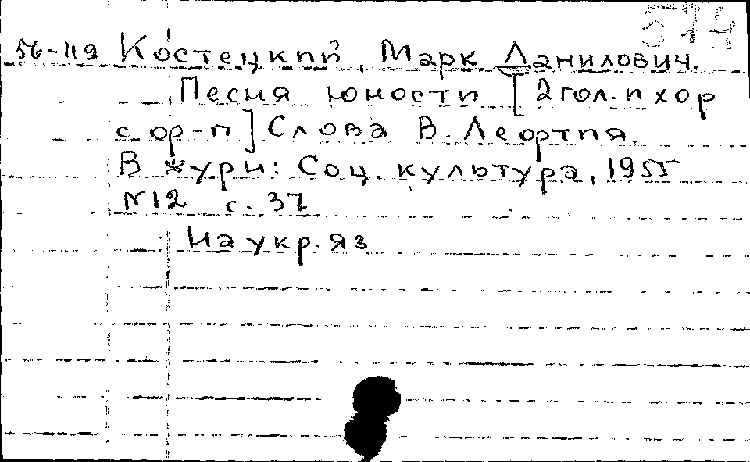 574
56-119 Костецкий, Марк Данилович.
Песня юности [2 гол. и хор
с ор-п] Слова В. Леортпя.
В журн: Соц. культура, 1955
N12 с. 37
На укр. яз